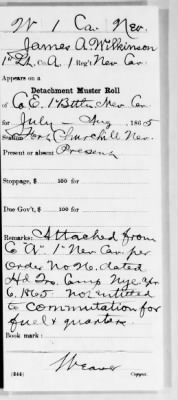 W 1 Cav. Nev.
James A. Wilkinson
1st Lt. Co. A, 1 Reg't Nev. Cav.
Appears on a
Detachment Muster Roll
of Co E. 1 Batt'n Nev. Cav.
for July – Aug, 1865
Station Fort Churchill Nev.
Present or absent Present
Stoppage, $ 100 for
Due Gov't, $ 100 for
Remarks: Attached from
Co "A" 1" Nev. Cav. per
Order No 26, dated
Hd Qrs. Camp Nye
6, 1865 Not entitled
to commutation for
fuel & quarters.
Book mark:
Weaver
(344) Copyist.